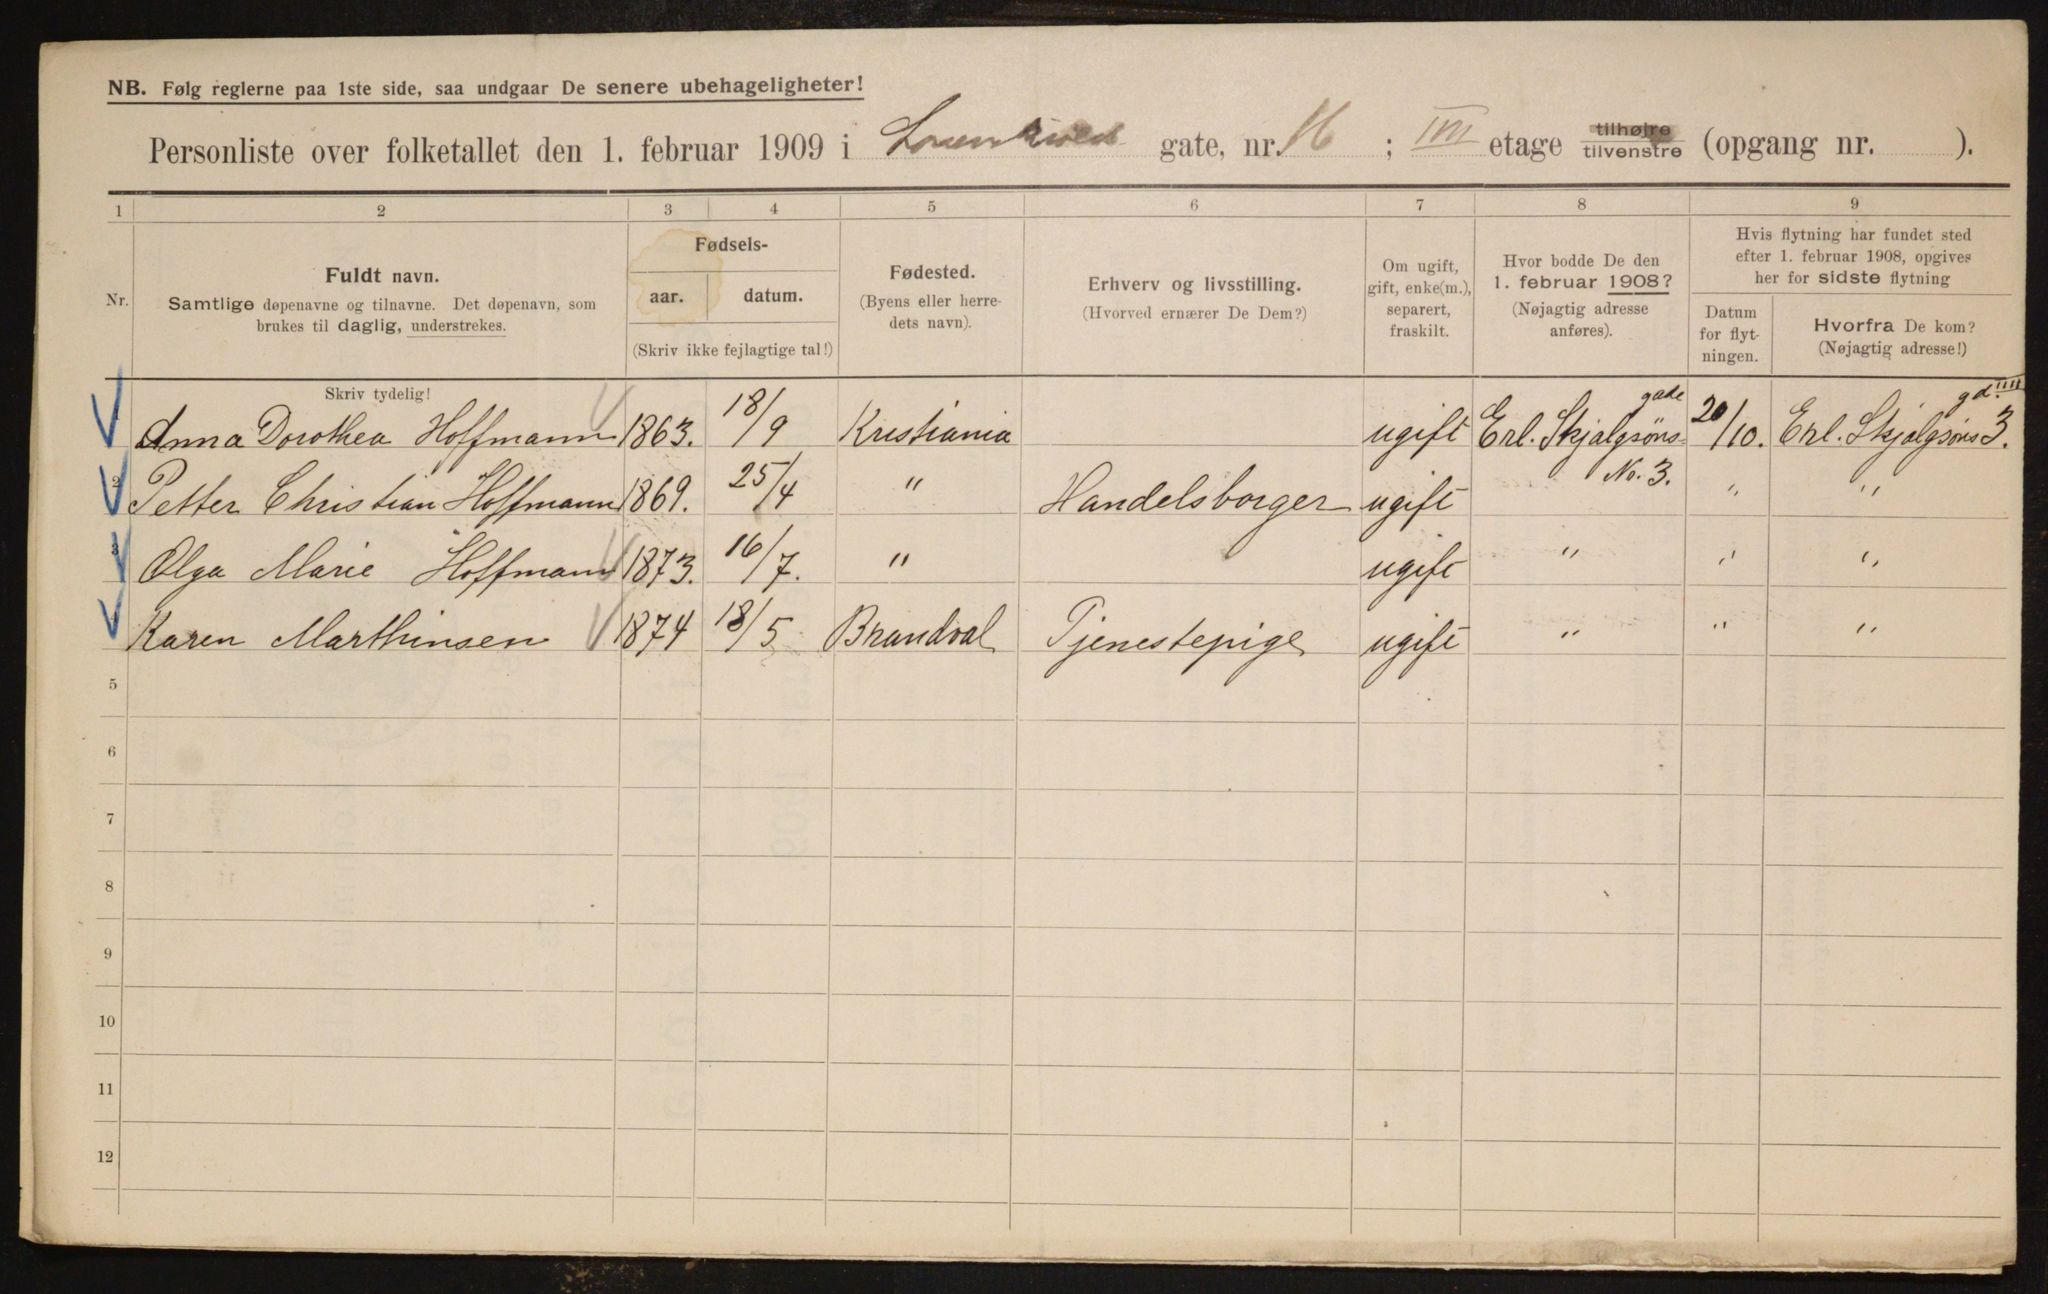 NB. Følg reglerne paa 1ste side, saa undgaar De senere ubehageligheter!
Personliste over folketallet den 1. februar 1909 i gate, nr. 16 ; IIII etage tilhøjre tilvenstre (opgang nr. ).
1 2 3 4 5 6 7 8 9
Nr. Fuldt navn. Samtlige døpenavne og tilnavne. Det døpenavn, som brukes til daglig, understrekes.
Fødsels-
aar. datum.
(Skriv ikke fejlagtige tal!)
Fødested. (Byens eller herredets navn).
Erhverv og livsstilling. (Hvorved ernærer De Dem?)
Om ugift, gift, enke(m.), separert, fraskilt.
Hvor bodde De den 1. februar 1908? (Nøjagtig adresse anføres).
Hvis flytning har fundet sted efter 1. februar 1908, opgives her for sidste flytning
Datum for flytningen.
Hvorfra De kom? (Nøjagtig adresse!)
Skriv tydelig!
1 Anna Dorothea Hoffmann 1863. 18/9 Kristiania ugift Erl. Skjalgsøns gade 20/10. Erl. Skjalgsøns gd. IIII 3.
2 Petter Christian Hoffmann 1869. 25/4 " Handelsborger ugift No. 3. " "
3 Olga Marie Hoffmann 1873. 16/7. " ugift " " "
4 Karen Marthinsen 1874 18/5 Brandval Tjenestepige ugift " " "
5
6
7
8
9
10
11
12